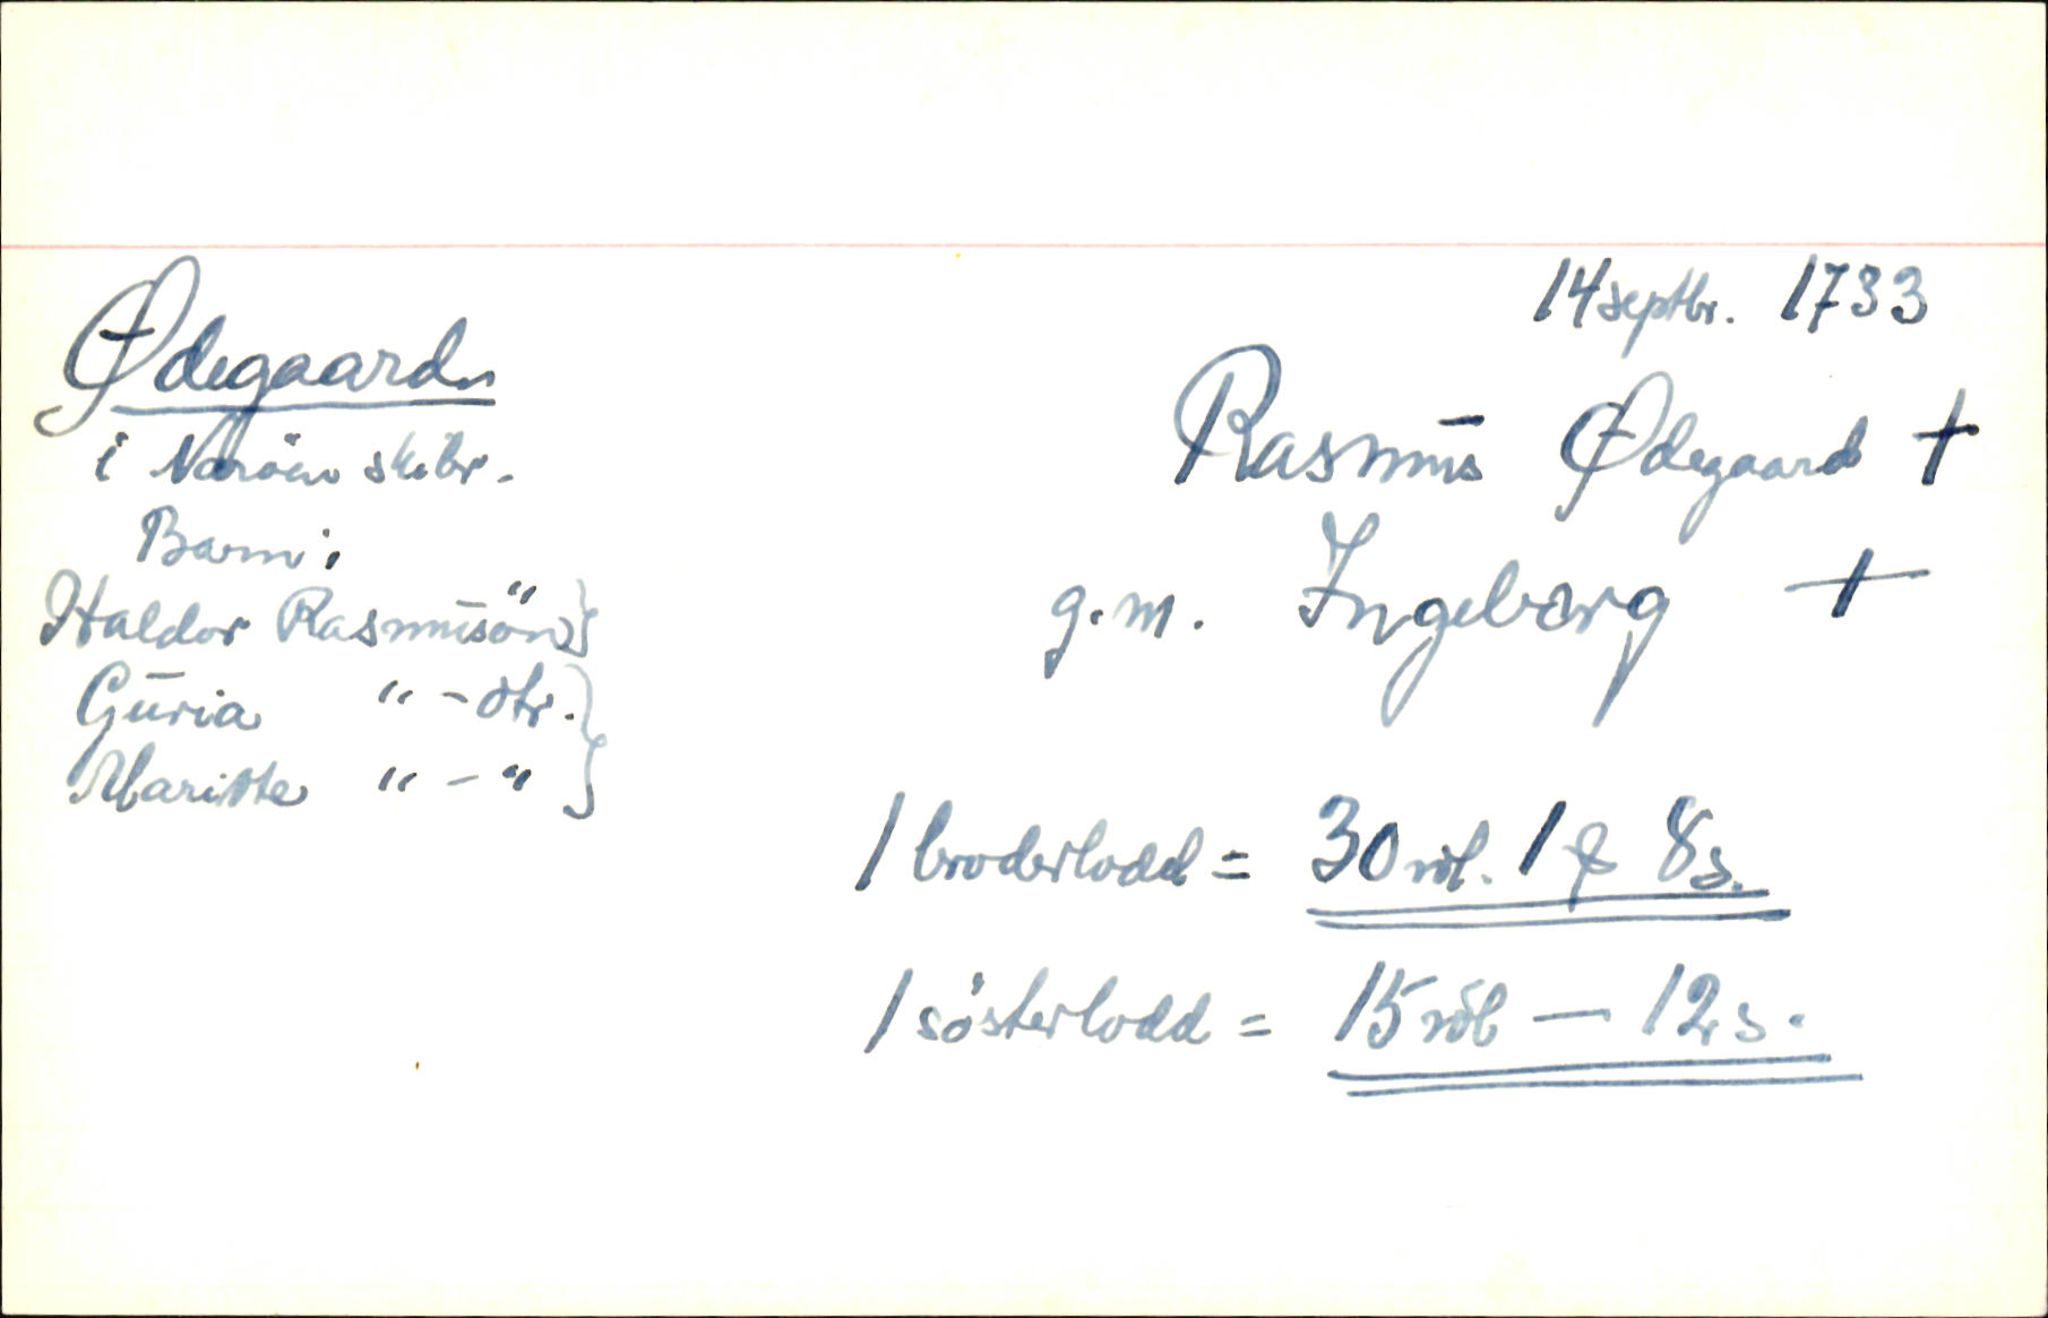 14 septbr. 1733
Ødegaard
i Naröens skibr.
Rasmus Ødegaard †
Barn:
g.m. Ingeborg †
Haldor Rasmusön
Guria " - dtr.
Maritte " - "
1 broderlodd = 30 rdl. 1 ß 8 s.
1 sösterlodd = 15 rdl — 12 s.